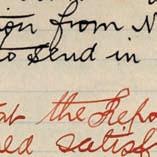 from N
to send in
the Repo
satisf